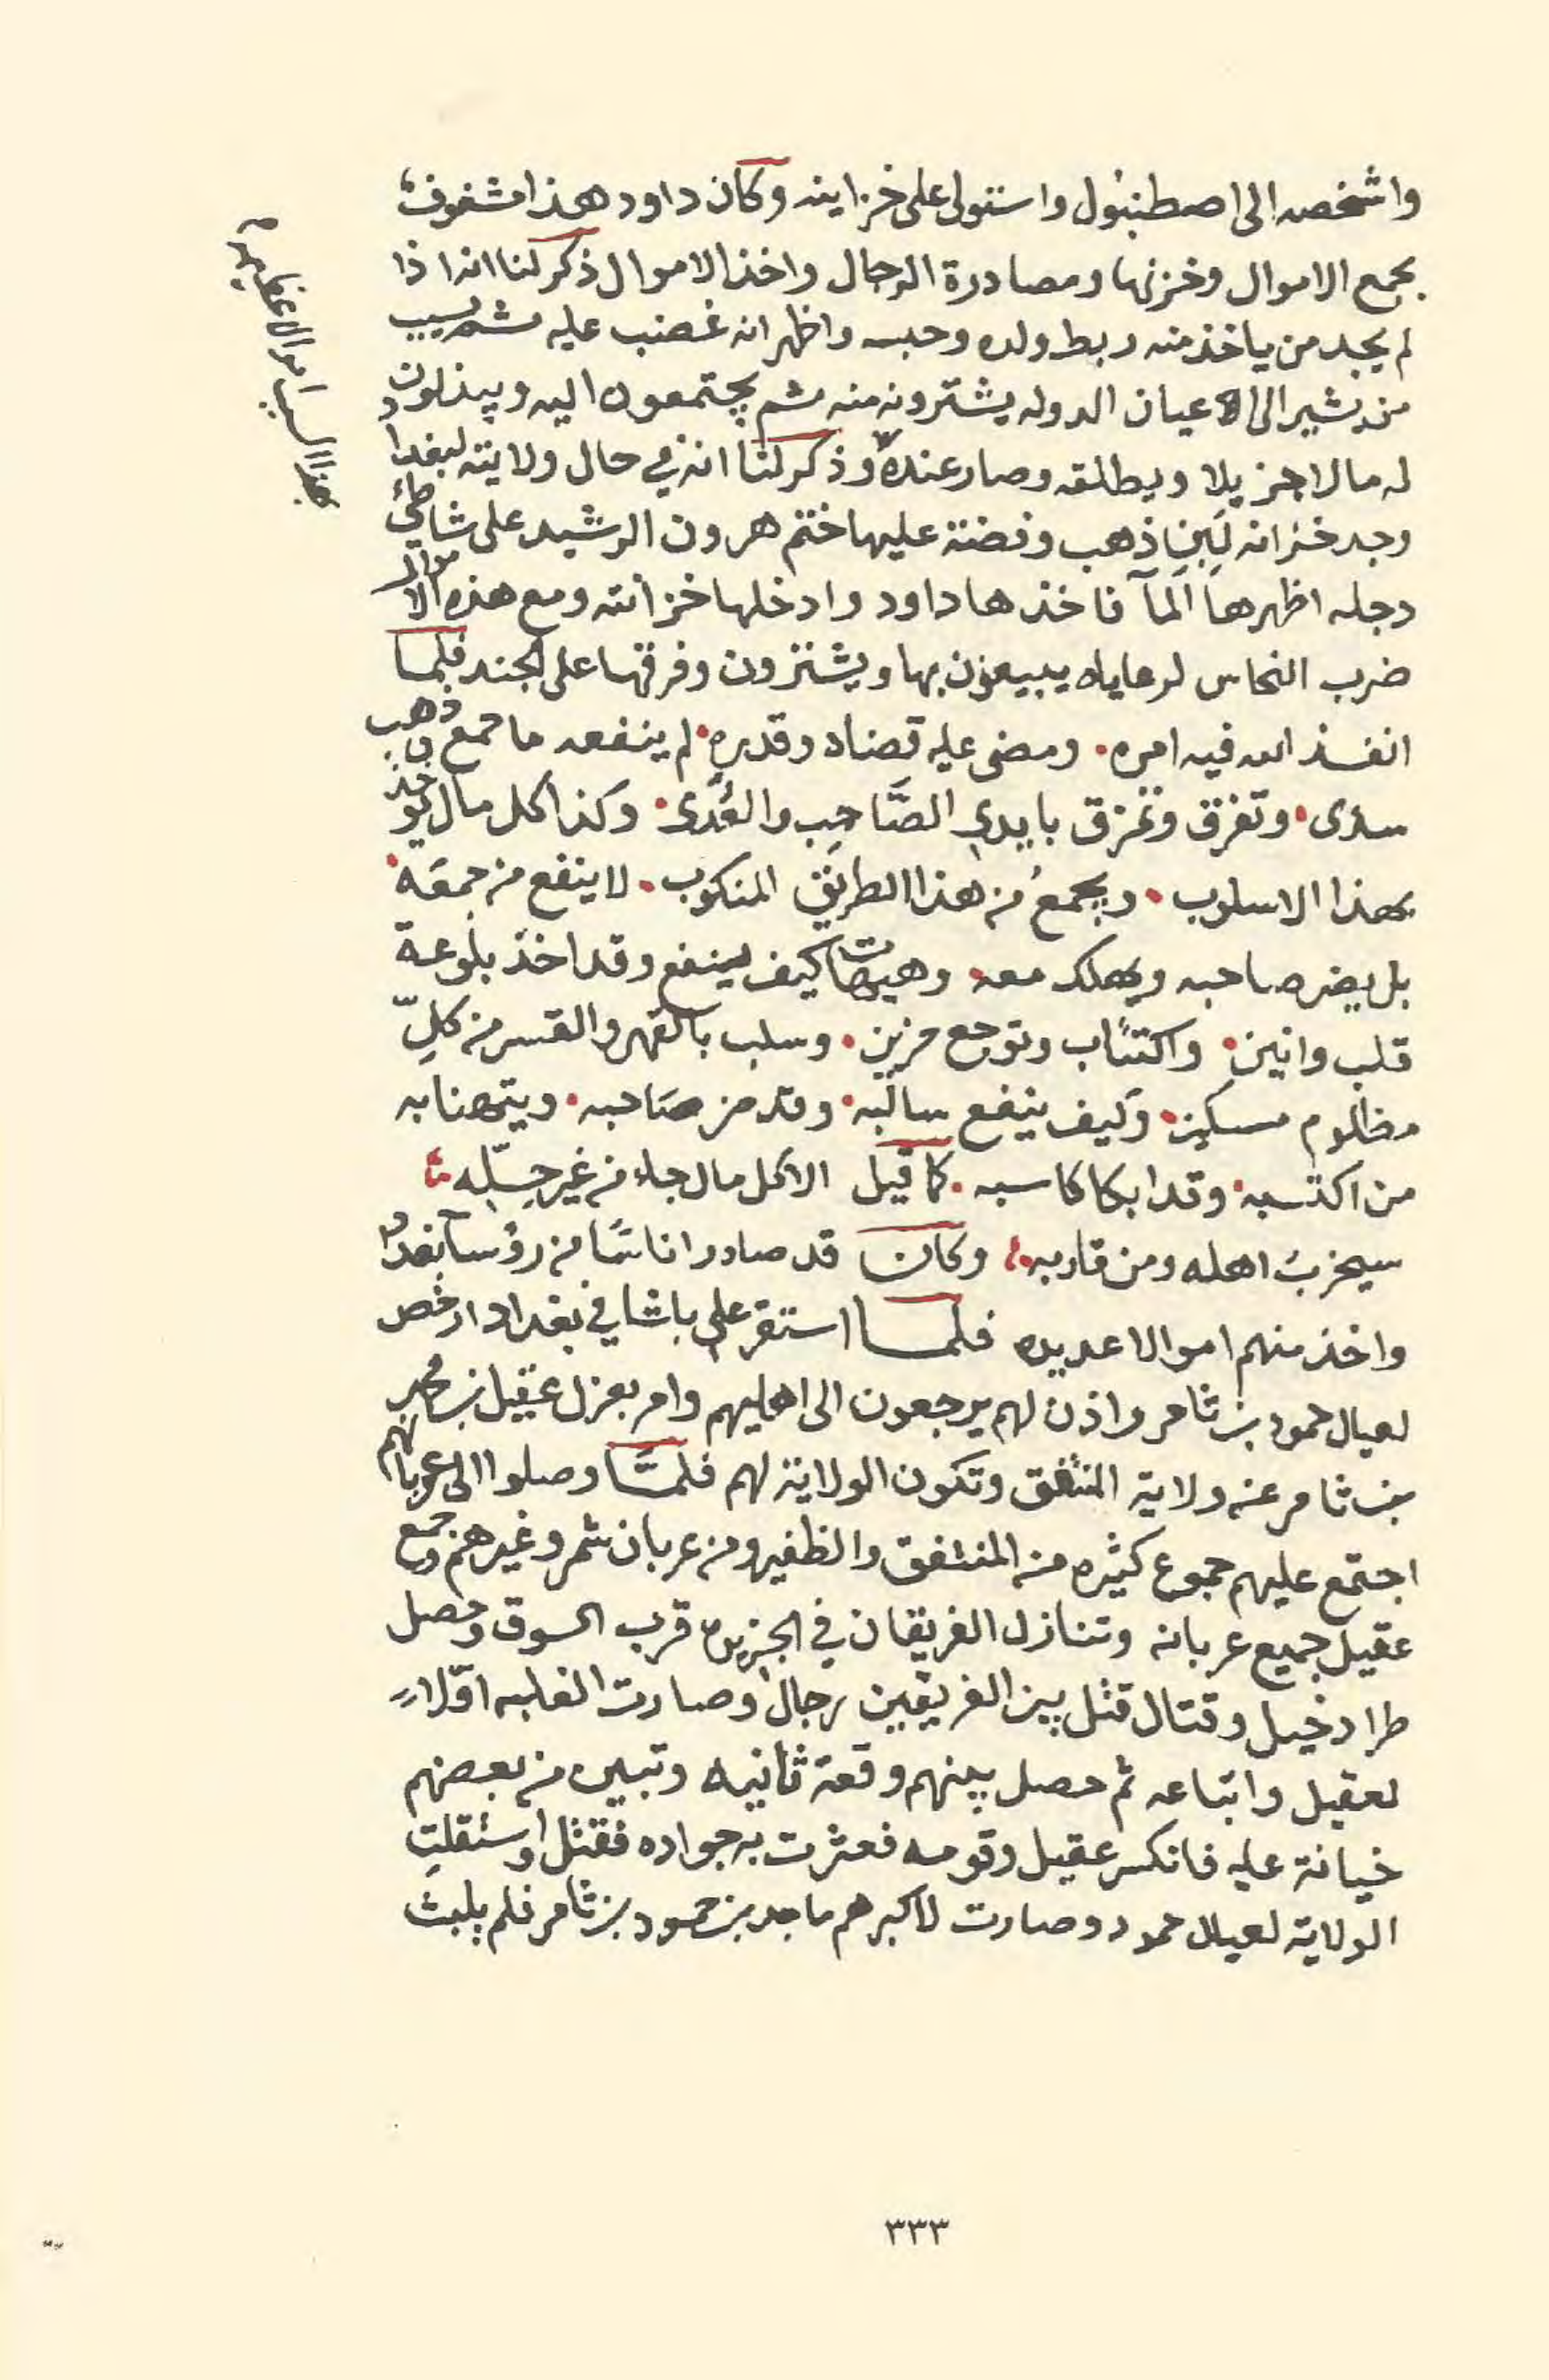 واشخصه الى اصطنبول واستولى على خزاينه وكان داود هذا مشغوف
بجمع الاموال وخزنها ومصادرة الرجال واخذ الاموال ذكر لنا انه اذا
لم يجد من ياخذ منه ربط ولده وحبسه واظهر انه غضب عليه ثم يسيب
من يشير الى الاعيان الدوله يشترونه منه ثم يجتمعون اليه ويبذلون
له مالا جزيلا ويطلقه وصار عنده وذكر لنا انه في حال ولايته لبغداد
وجد خزانه لبن ذهب وفضة عليها ختم هرون الرشيد على شاطئ
دجله اظهرها المآ فاخذها داود وادخلها خزانته ومع هذه الاموال
ضرب النحاس لرعاياه يبيعون بها ويشترون وفرقها على الجند فلما
انفذ الله فيه امره. ومضى عليه قضاه وقدره. لم ينفعه ما جمع بل ذهب
سدى. وتفرق وتمزق بايدي الصَّاحِب والعُدَى. وكذا كل مال يوخذ
بهذا الاسلوب. ويجمعُ من هذا الطريق المنكوب. لا ينفع من جمعَه.
بل يضر صاحبه ويهلك معه. وهيهات كيف ينفع وقد اخذ بلوعة
قلب وانين. واكتئاب وتوجع حزين. وسلب بالقهر والقسر من كلِّ
مظلوم مسكين. وكيف ينفع سالبه. وقد ضر صاحبه. ويتهنا به
من اكتسبه. وقد ابكا كاسبه. كما قيل الا كل مال جاء من غير حِلِّه
سيخربُ اهله ومن قاربه وكان قد صادر اناسًا من رؤسآ بغداد
واخذ منهم اموالا عديده فلمـا استقر علي باشا في بغداد ارخص
لعيال حمود بن ثامر واذن لهم يرجعون الى اهليهم وامر بعزل عقيل بن محمد
بن ثامر عنه ولاية المنتفق وتكون الولاية لهم فلمَّا وصلوا الى عربانهم
اجتمع عليهم جموع كثيره من المنتفق والظفير ومن عربان شمر وغيرهم وجمع
عقيل جميع عربانه وتنازل الفريقان في الجزيره قرب السوق وحصل
طراد خيل وقتال قتل بين الفريقين رجال وصارت الغلبه اوّلا
لعقيل واتباعه ثم حصل بينهم وقعة ثانيه وتبين من بعضهم
خيانة عليه فانكسر عقيل وقومه فعثرت به جواده فقتل واستقلت
الولاية لعيال حمود وصارت لاكبرهم ماجد بن حمود بن ثامر فلم يلبث
٣٣٣